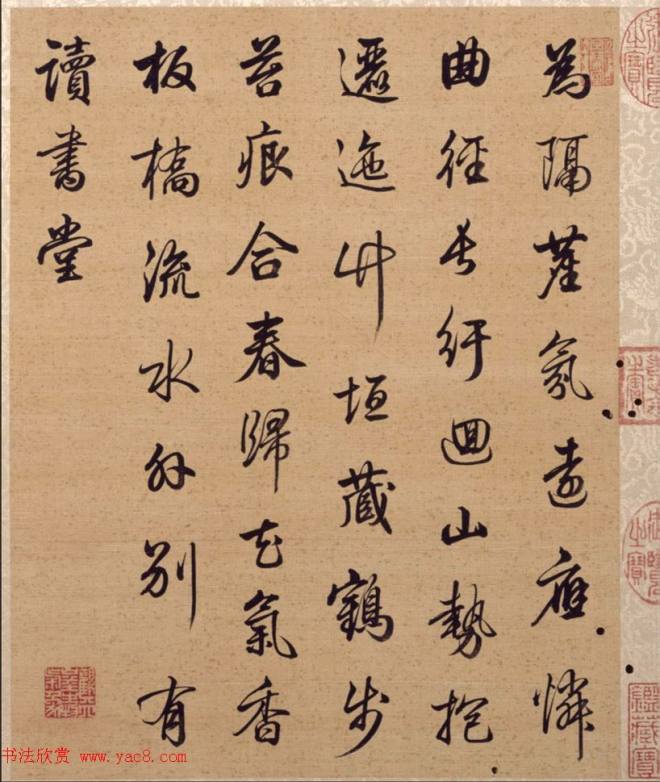 為隔塵氛遠應憐
曲徑長紆迴山勢抱
邐迤竹垣藏鶴步
苔痕合春歸花氣香
板橋流水外別有
讀書堂
书法欣赏 www.yac8.com